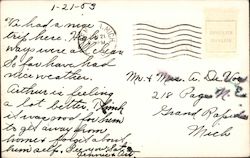 1-21-53
We had a nice
trip here. High-
ways were all clear
So far have had
nice weather.
Arthur is feeling
a lot better. Think
it was good for him
to get away from
home & forget about
him self.
Mr. & Mrs. A. De Vos
218 Page N.E.
Grand Rapids
Mich